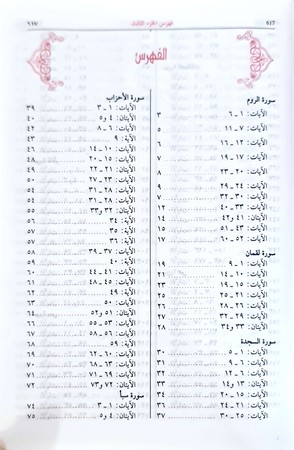 ٦١٧ فهرس الجزء الثالث ٦١٧
الفهرس
سورة الروم
الآيات: ١ – ٦ ٣
الآيات: ٧ – ١١ ٥
الآيات: ١٢ – ١٦ ٦
الآيات: ١٧ – ١٩ ٧
الآيات: ٢٠ – ٢٣ ٨
الآيات: ٢٤ – ٢٩ ٩
الآيات: ٣٠ – ٣٢
الآيات: ٣٣ – ٤٠ ١٢
الآيتان: ٤١ و٤٢ ١٤
الآيات: ٤٣ – ٥١ ١٥
الآيات: ٥٢ – ٦٠ ١٧
سورة لقمان
الآيات: ١ – ٩ ١٩
الآيات: ١٠ – ١٤ ٢١
الآيات: ١٥ – ١٩ ٢٣
الآيات: ٢٠ – ٢٥ ٢٥
الآيات: ٢٦ – ٢٨ ٢٦
الآيات: ٢٩ – ٣٢ ٢٧
الآيتان: ٣٣ و٣٤ ٢٨
سورة السجدة
الآيات: ١ – ٥ ٣٠
الآيات: ٦ – ١٢ ٣٢
الآيتان: ١٣ و١٤ ٣٣
الآيات: ١٥ – ٢٠ ٣٤
الآيات: ٢١ – ٢٤ ٣٦
الآيات: ٢٥ – ٣٠ ٣٧
سورة الأحزاب
الآيات: ١ – ٣ ٣٩
الآيتان: ٤ و٥ ٤٠
الآيات: ٦ – ٨ ٤٢
الآية: ٩ ٤٣
الآيات: ١٠ – ١٤ ٤٦
الآيات: ١٥ – ٢٠ ٤٨
الآيتان: ٢١ و٢٢ ٤٩
الآيات: ٢٣ – ٢٧ ٥٠
الآيات: ٢٨ – ٣١ ٥٤
الآيات: ٢٨ – ٣١ ٥٤
الآيتان: ٣٢ و٣٣ ٥٥
الآية: ٣٤ ٥٦
الآية: ٣٥ ٥٧
الآية: ٣٦ ٥٧
الآيات: ٣٧ – ٣٩ ٥٨
الآية: ٤٠ ٥٩
الآيات: ٤١ – ٤٤ ٦٠
الآيات: ٤٥ – ٤٨ ٦١
الآية: ٤٩ ٦٢
الآية: ٥٠ ٦٣
الآيتان: ٥١ و٥٢ ٦٤
الآيات: ٥٣ – ٥٥ ٦٦
الآيات: ٥٦ – ٥٨ ٦٧
الآية: ٥٩ ٦٨
الآيات: ٦٠ – ٦٢ ٦٩
الآيات: ٦٣ – ٦٨ ٧٠
الآيات: ٦٩ – ٧١ ٧١
الآيتان: ٧٢ و٧٣ ٧٢
سورة سبأ
الآيات: ١ – ٣ ٧٤
الآيتان: ٤ و٥ ٧٥